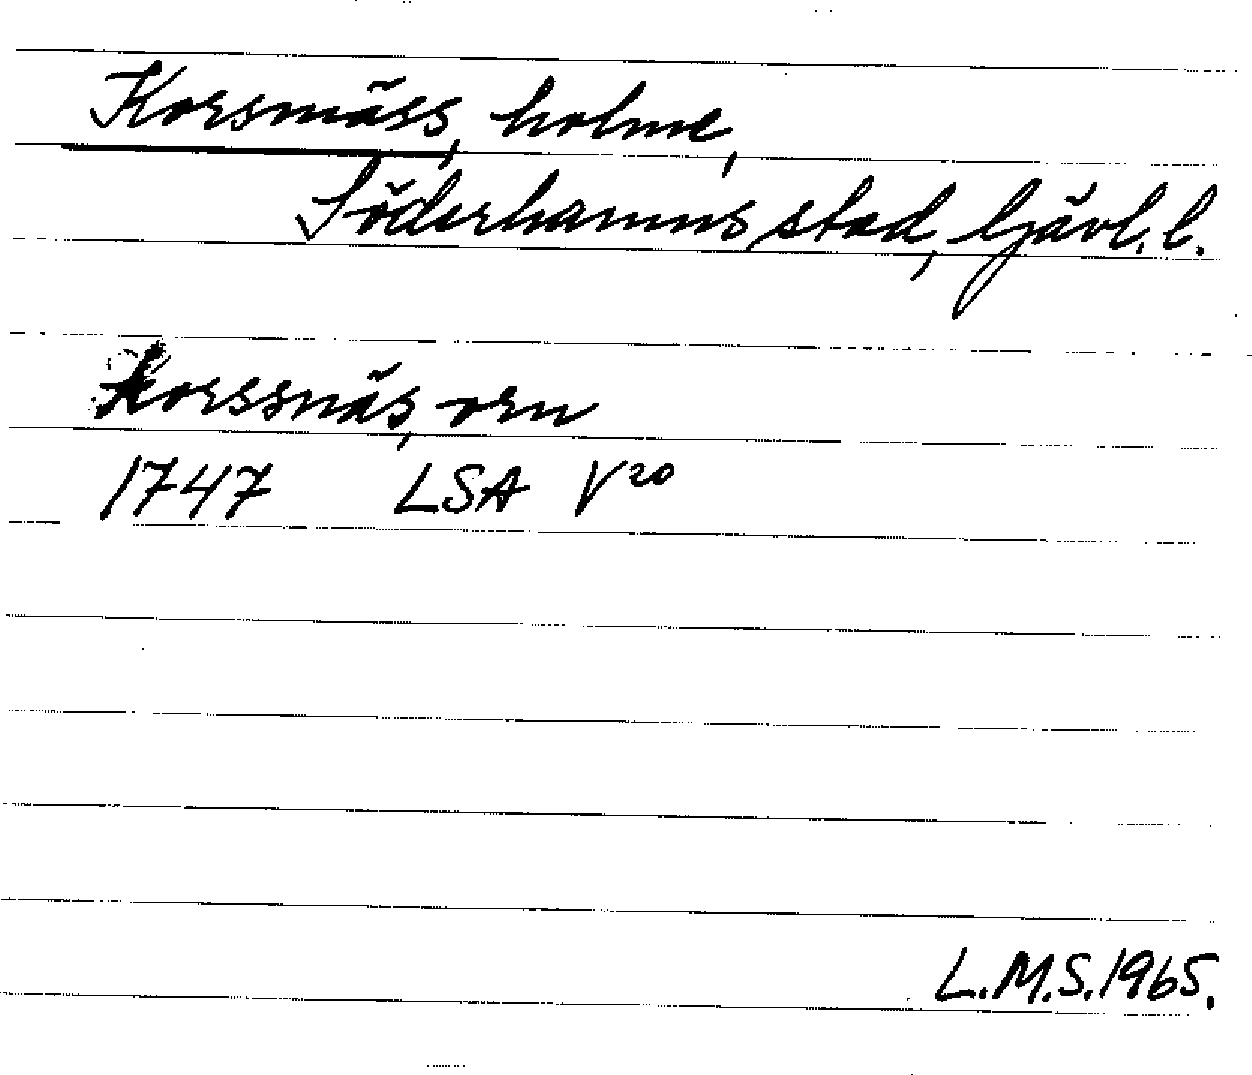 Korsnäss, holme,
Söderhamns stad, Gävl. l.
Korssnäs, orn
1747 LSA V²⁰
L.M.S. 1965.